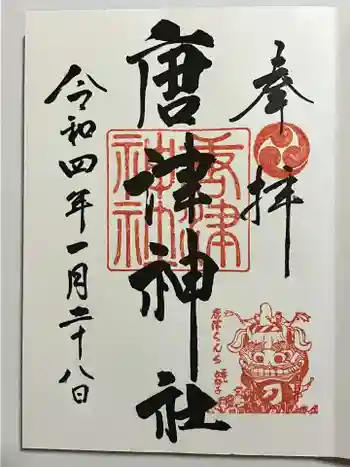 奉拝
唐津神社
唐津神社
令和四年一月二十八日
唐津くんち